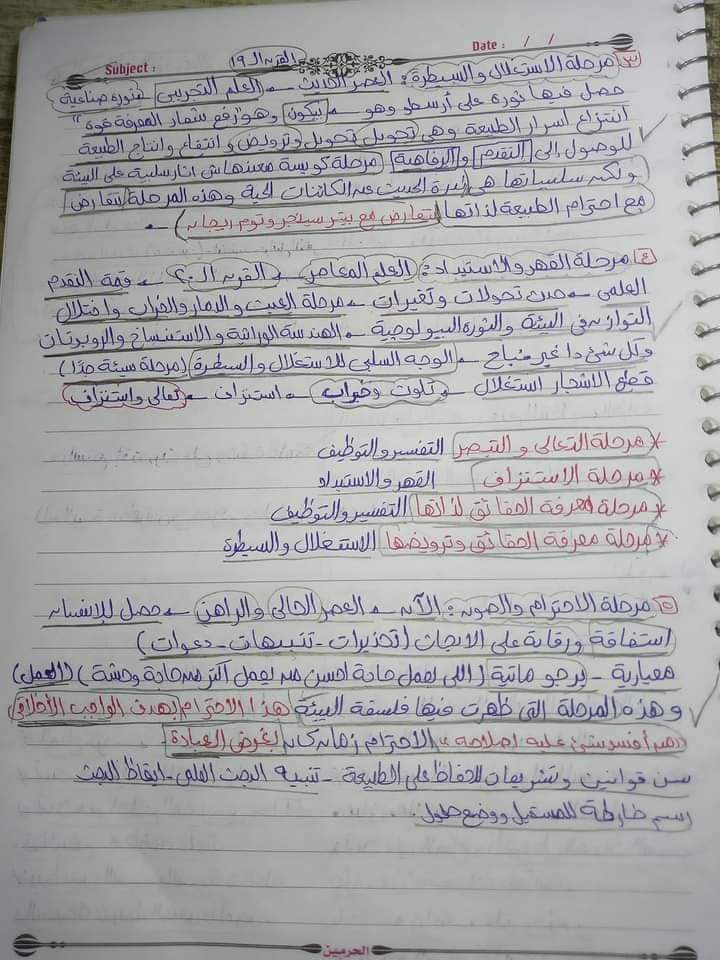 Subject : القرن الـ ١٩ Date : / /
٣ مرحلة الاستغلال والسيطرة : العصر الحديث ← العلم التجريبى ثورة صناعية
حصل فيها ثورة على أرسطو وهو ← بيكون وهو رفع شعار المعرفة قوة"
انتزاع اسرار الطبيعة وهى تحويل تحويل وترويض وانتفاع وانتاج الطبيعة
للوصول إلى التقدم والرفاهية مرحلة كويسة معندهاش اثار سلبية على البيئة
ولكن سلبياتها هى ندرة الحديث عن الكائنات الحية وهذه المرحلة تتعارض
مع احترام الطبيعة لذاتها تتعارض مع بيتر سينجر وتوم ريجان
٤ مرحلة القهر والاستبداد : العلم المعاصر ← القرن الـ ٢٠ ← قمة التقدم
العلمى ← حدث تحولات وتغيرات ← مرحلة العبث والدمار والخراب واختلال
التوازن فى البيئة والثورة البيولوجية ← الهندسة الوراثية والاستنساخ والروبوتات
وكل شئ دا غير مباح ← الوجه السلبى للاستغلال والسيطرة (مرحلة سيئة جدًا)
قطع الاشجار استغلال ← تلوث وخراب ← استنزاف ← تعالى واستنزاف
* مرحلة التعالى و التبصر التفسير والتوظيف
* مرحلة الاستنزاف القهر والاستبداد
* مرحلة معرفة الحقائق لذاتها التفسير والتوظيف
* مرحلة معرفة الحقائق وترويضها الاستغلال والسيطرة
٥ مرحلة الاحترام والصون : الآن ← العصر الحالى والراهن ← حصل للإنسان
استفاقة ورقابة على الابحاث (تحذيرات - تنبيهات - دعوات)
معيارية - برجماتية (اللى يعمل حاجة احسن من يعمل اكتر من حاجة وحشة) (العمل)
وهذه المرحلة التى ظهرت فيها فلسفة البيئة هذا الاحترام بهدف الواجب الأخلاقى
"من أفسد شئ عليه إصلاحه" الاحترام زمان كان لغرض العبادة
سن قوانين وتشريعات للحفاظ على الطبيعة - تنبيه البحث العلمى - ايقاظ البحث
رسم خارطة للمستقبل ووضع حلول .
الحرمين